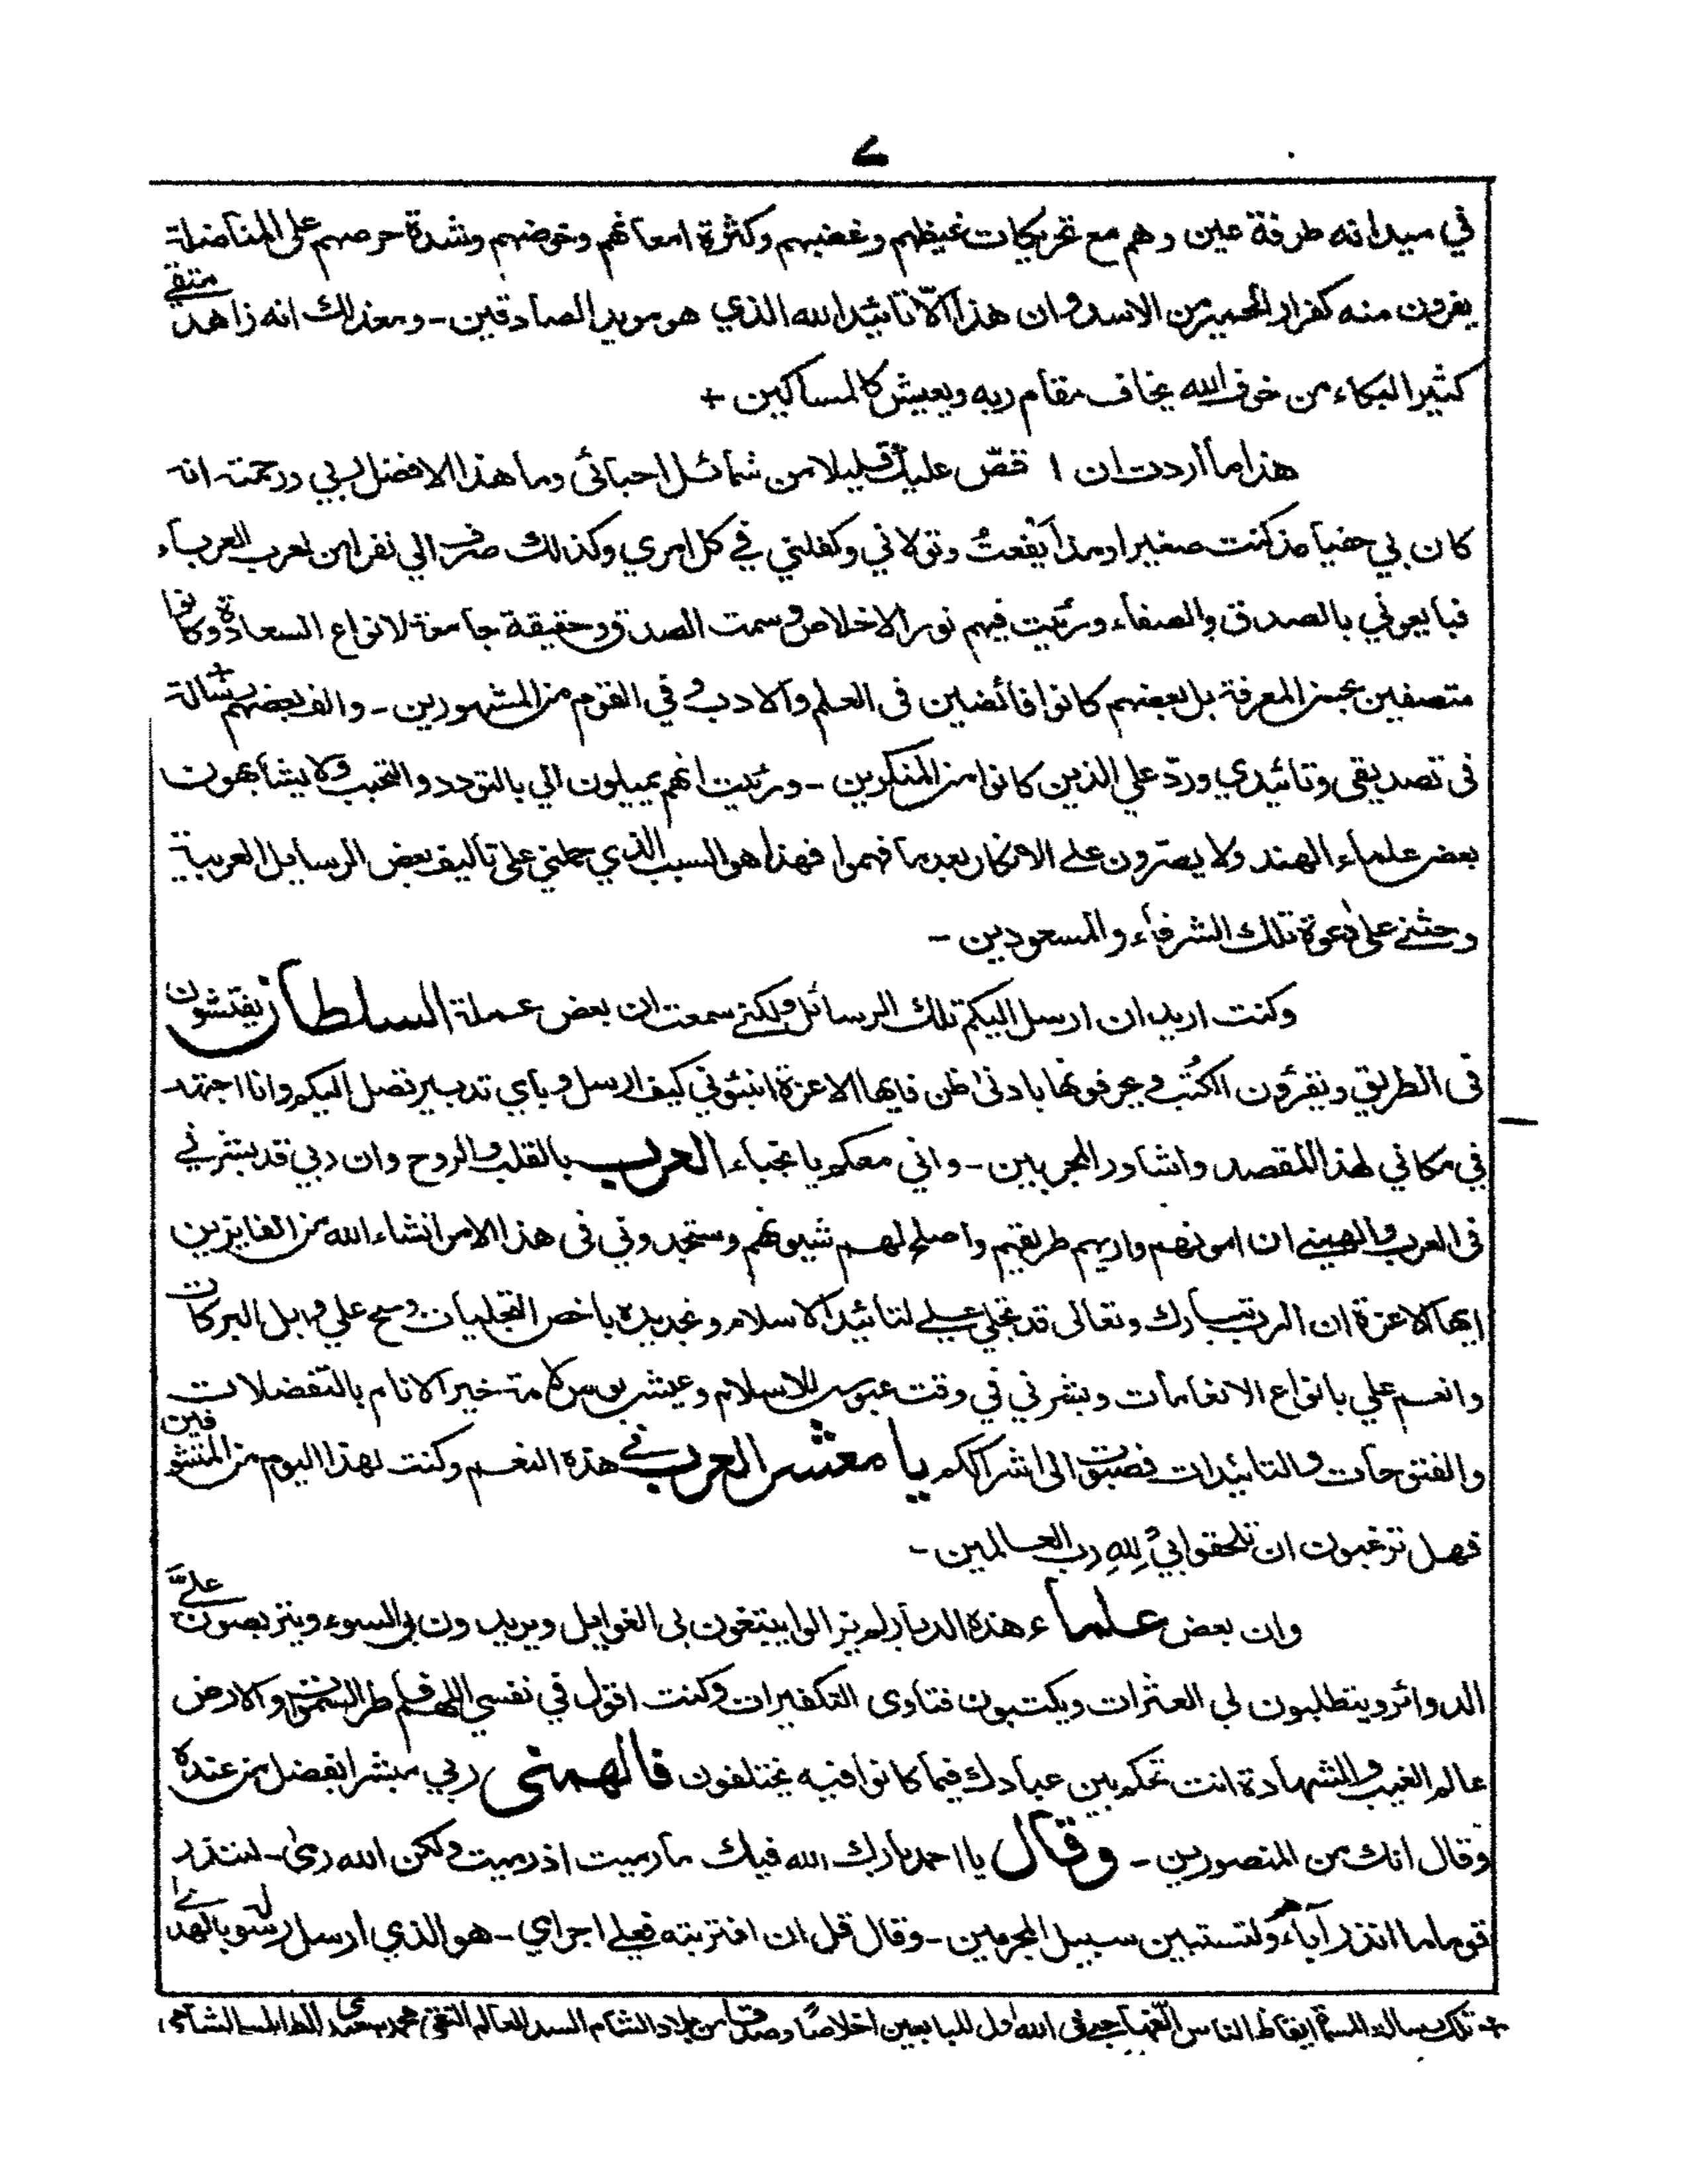 ۷
في ميدانه طرفة عين وهم مع تحريكات غيظهم وغضبهم وكثرة امعانهم وخوضهم وشدة حرصهم على المناضلة
يفرون منه كفرار الحمير من الاسد وان هذا الّا تائيد الله الذي هو مويد الصادقين - ومعذلك انه زاهد متقي
كثير البكاء من خوف الله يخاف مقام ربه ويعيش كالمساكين +
هذا ما أردت ان اقصّ عليك قليلا من شمائل احبائى وما هذا الا فضل ربي ورحمته انه
كان بي حفيا مذ كنت صغيرا ومذ أيفعتُ وتولاني وكفلني في كل امري وكذلك صرف الي نفرا من العرب العرباء
فبايعوني بالصدق والصفاء ورئيت فيهم نور الاخلاص وسمت الصدق وحقيقة جامعة لانواع السعادة وكانوا
متصفين بحسن المعرفة بل بعضهم كانوا فائضين فى العلم والادب وفي القوم من المشهورين - والف بعضهم رسالة +
فى تصديقى وتائيدي وردّ على الذين كانوا من المنكرين - ورئيت انهم يميلون الي بالتودد والتحبب ولا يشابهون
بعض علماء الهند ولا يصرّون على الانكار بعد ما فهموا فهذا هو السبب الذي حملني على تأليف بعض الرسايل العربية
وحثني على دعوة تلك الشرفاء والمسعودين -
وكنت اريد ان ارسل اليكم تلك الرسائل ولكني سمعت ان بعض عملة السلطان يفتشون
فى الطريق ويقرؤن الكُتب ويحرفونها بادنى ظن فايها الاعزة انبئوني كيف ارسل وباي تدبير تصل اليكم وانا اجتهد
في مكاني لهذا المقصد واشاور المجربين - واني معكم يا نجباء العرب بالقلب والروح وان ربي قد بشرني
فى العرب والهمني ان امونهم واريهم طريقهم واصلح لهم شيونهم وستجدوني فى هذا الامر انشاء الله من الفايزين
ايها الاعزة ان الرب تبارك وتعالى قد تجلي علي لتائيد الاسلام وتجديده باخص التجليات وسح علي وابل البركات
وانعم علي بانواع الانعامات وبشرني في وقت عبوس للاسلام وعيش بوس لامة خير الانام بالتفضلات
والفتوحات والتائيدات فصبوت الى اشراككم يا معشر العرب في هذه النعم وكنت لهذا اليوم من المتشوفين
فهل ترغبون ان تلحقوا بي لله رب العالمين -
وان بعض علماء هذه الديار لم يزالوا يبتغون بى الغوايل ويريدون بي السوء ويتربصون عليَّ
الدوائر ويتطلبون لي العثرات ويكتبون فتاوى التكفيرات وكنت اقول في نفسي اللهم فاطر السموات والارض
عالم الغيب والشهادة انت تحكم بين عبادك فيما كانوا فيه يختلفون فالهمنى ربي مبشرا بفضل من عنده
وقال انك من المنصورين - وقال يا احمد بارك الله فيك ما رميت اذ رميت ولكن الله رمى - لتنذر
قوما ما انذر آباءهم ولتستبين سبيل المجرمين - وقال قل ان افتريته فعلي اجرامي - هو الذي أرسل رسوله بالهدى
+ تلك رسالة المسماة ايقاظ الناس الفها حبي فى الله اول المبايعين اخلاصًا وصدقا من بلاد الشام السيد العالم التقى محمد سعيدي الطرابلسي الشامي،